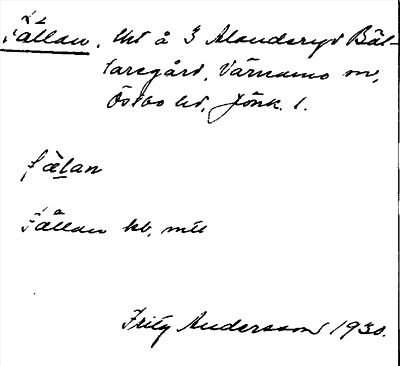 Fållan, lht å 3 Alanderyd Bäl-
laregård, Värnamo sn,
Östbo hd, Jönk. l.
fæ̀lan
Fållan kb, mtl
Fritz Andersson 1930.